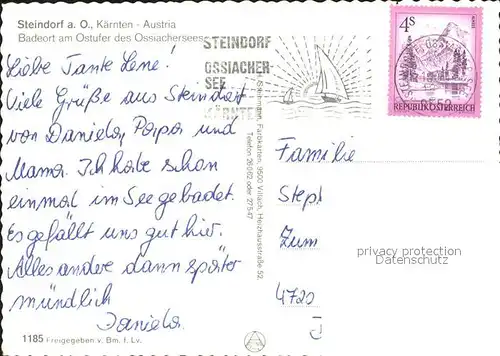 Steindorf a. O., Kärnten - Austria
Badeort am Ostufer des Ossiachersees
STEINDORF
OSSIACHER-
SEE
KÄRNTEN
4S
REPUBLIK ÖSTERREICH
9552
Liebe Tante Lene!
Viele Grüße aus Steindorf
von Daniela, Papa und
Mama. Ich habe schon
einmal im See gebadet.
Es gefällt uns gut hier.
Alles andere dann später
mündlich
Daniela.
Familie
Steph
Zum
4720
Farbkarten, 9500 Villach, Herzhausstraße 52,
Telefon 26062 oder 27547
privacy protection
Datenschutz
1185 Freigegeben v. Bm. f. Lv.